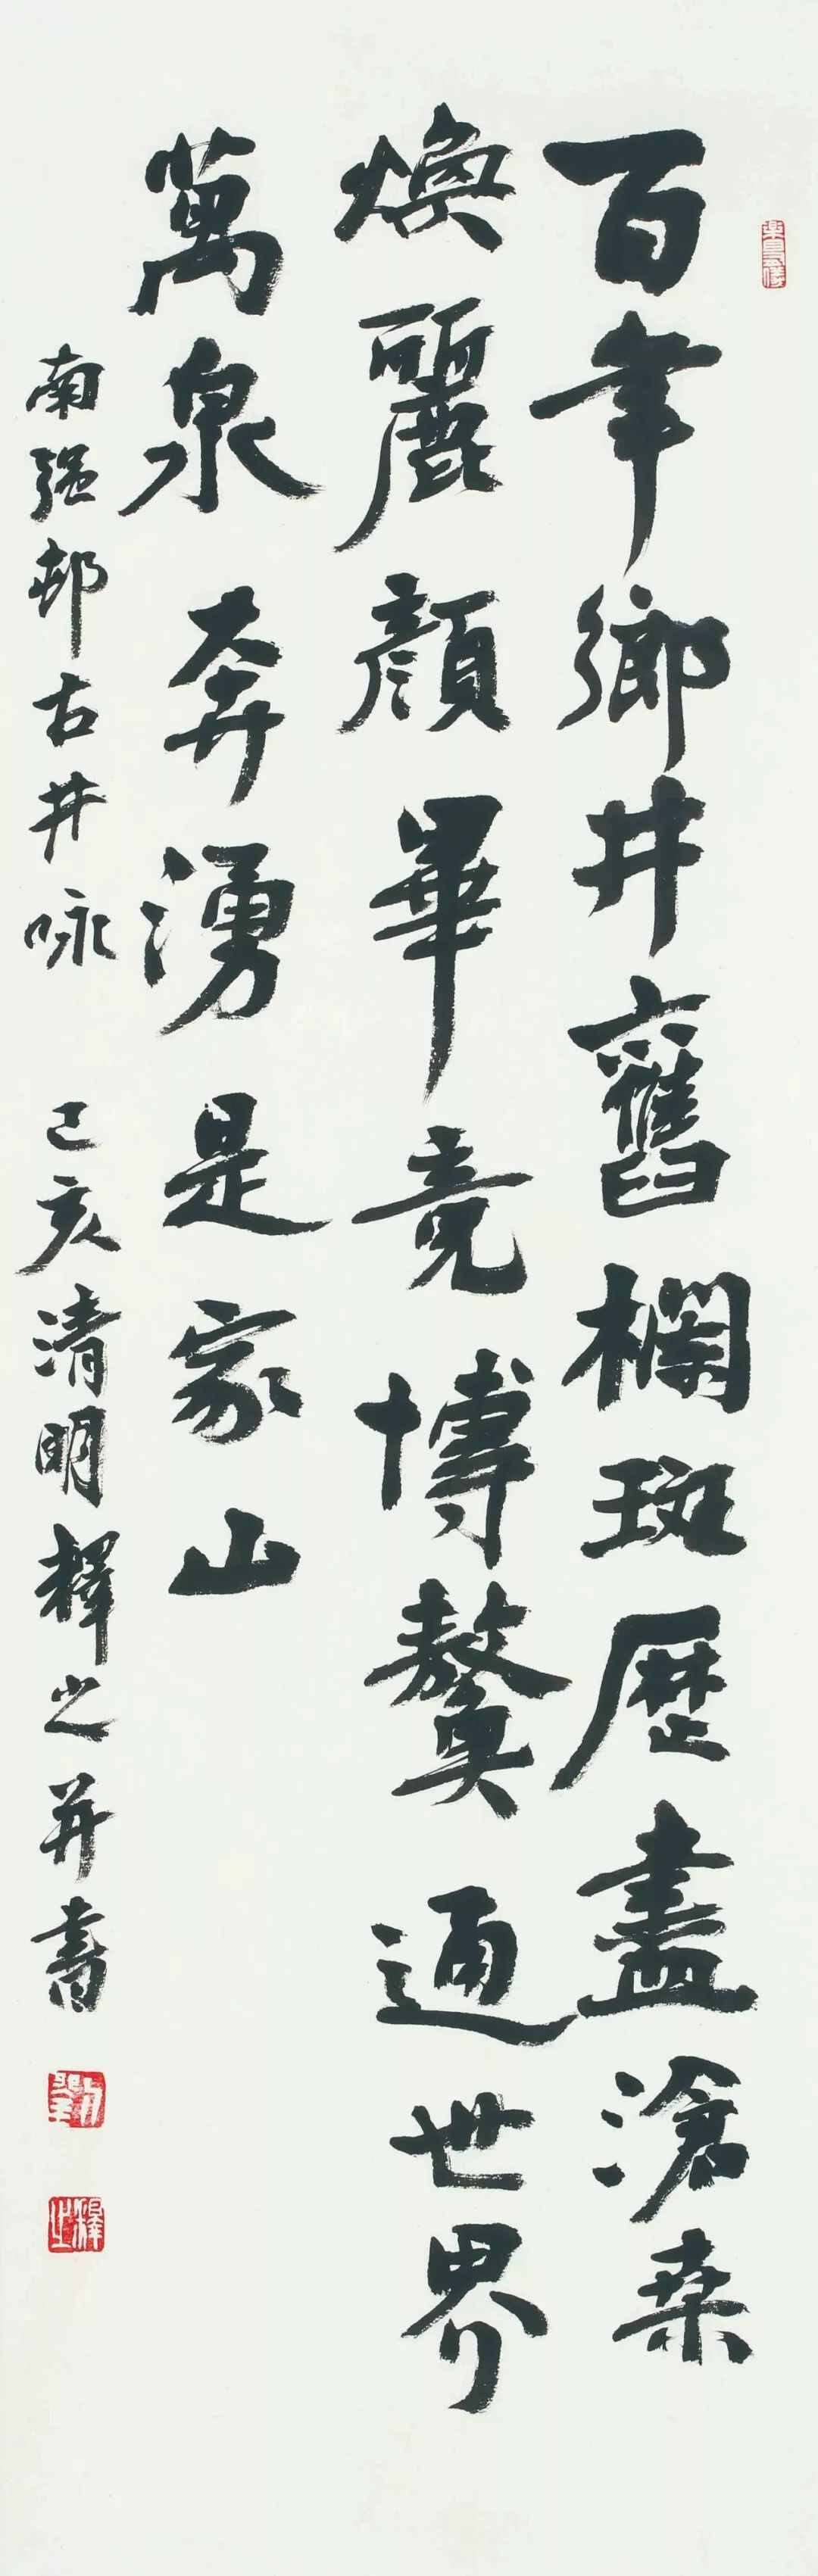 百年鄉井舊欄斑歷盡滄桑
煥麗顏畢竟博鰲通世界
萬泉奔湧是家山
南强邨古井咏 己亥清明釋之并書
劉
釋之